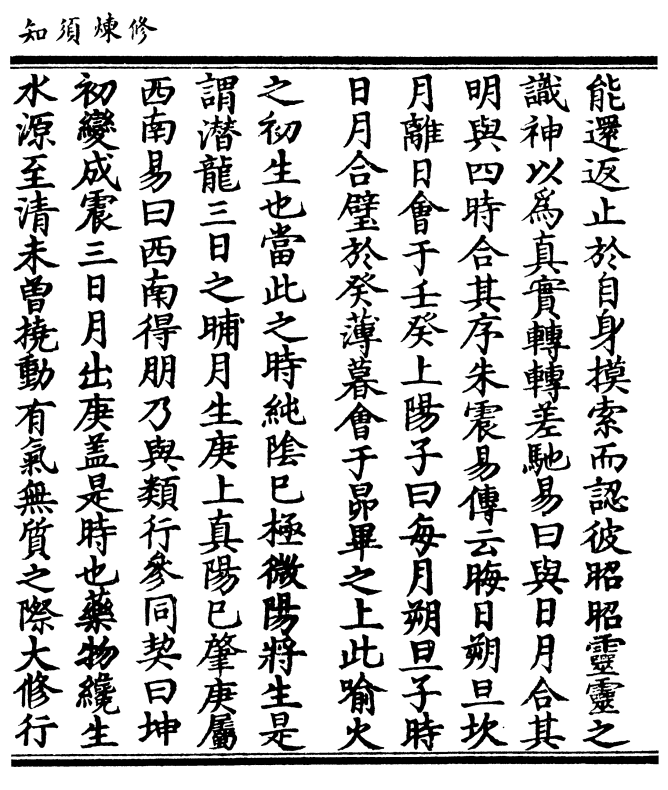 修煉須知
能還返止於自身摸索而認彼昭昭靈靈之
識神以為真實轉轉差馳易曰與日月合其
明與四時合其序朱震易傳云晦日朔旦坎
月離日會于壬癸上陽子曰每月朔旦子時
日月合璧於癸薄暮會于昴畢之上此喻火
之初生也當此之時純陰已極微陽將生是
謂潛龍三日之晡月生庚上真陽已肇庚屬
西南易曰西南得朋乃與類行參同契曰坤
初變成震三日月出庚盖是時也藥物纔生
水源至清未曾撓動有氣無質之際大修行